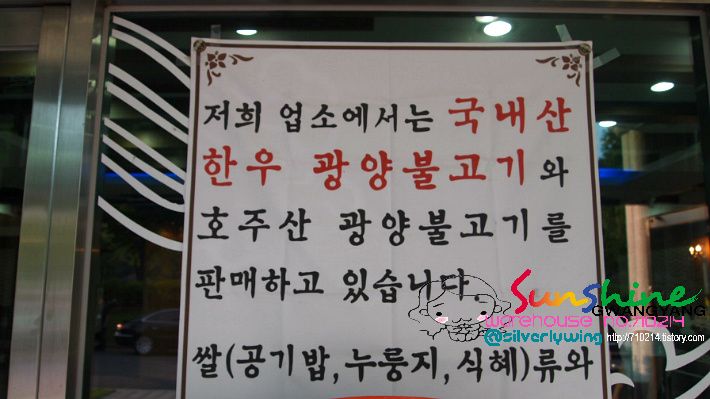 저희 업소에서는 국내산
한우 광양불고기와
호주산 광양불고기를
판매하고 있습니다
쌀(공기밥,누룽지,식혜)류와
Sunshine
GWANGYANG
warehouse no.710214
@silverlywing http://710214.tistory.com